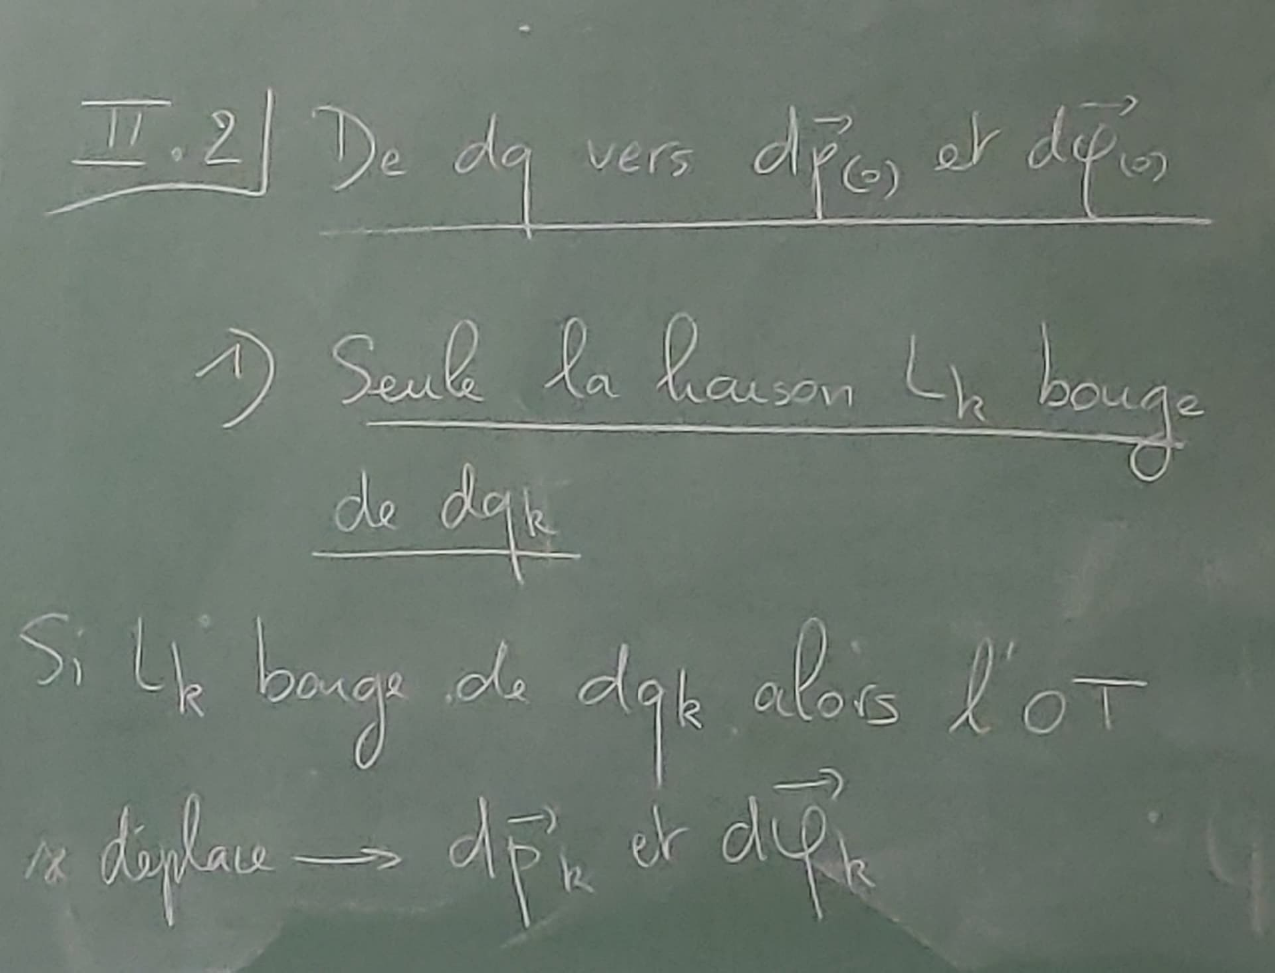 II.2 De dq vers dp⃗(0) et dφ⃗(0)
1) Seule la liaison Lk bouge
de dqk
Si Lk bouge de dqk alors l'OT
se déplace → dp⃗k et dφ⃗k